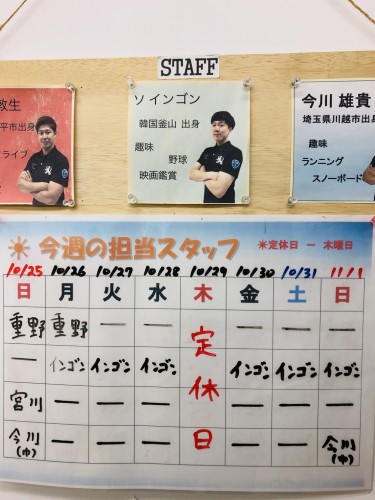 STAFF
教生
平市出身
ドライブ
ソ インゴン
韓国釜山 出身
趣味
野球
映画鑑賞
今川 雄貴
埼玉県川越市出身
趣味
ランニング
スノーボード
☀今週の担当スタッフ ☀定休日 ー 木曜日
10/25 10/26 10/27 10/28 10/29 10/30 10/31 11/1
日 月 火 水 木 金 土 日
重野 重野 ー ー 定 ー ー ー
ー インゴン インゴン インゴン 休 インゴン インゴン インゴン
宮川 ー ー ー 日 ー ー ー
今川(巾) ー ー ー ー ー 今川(巾)